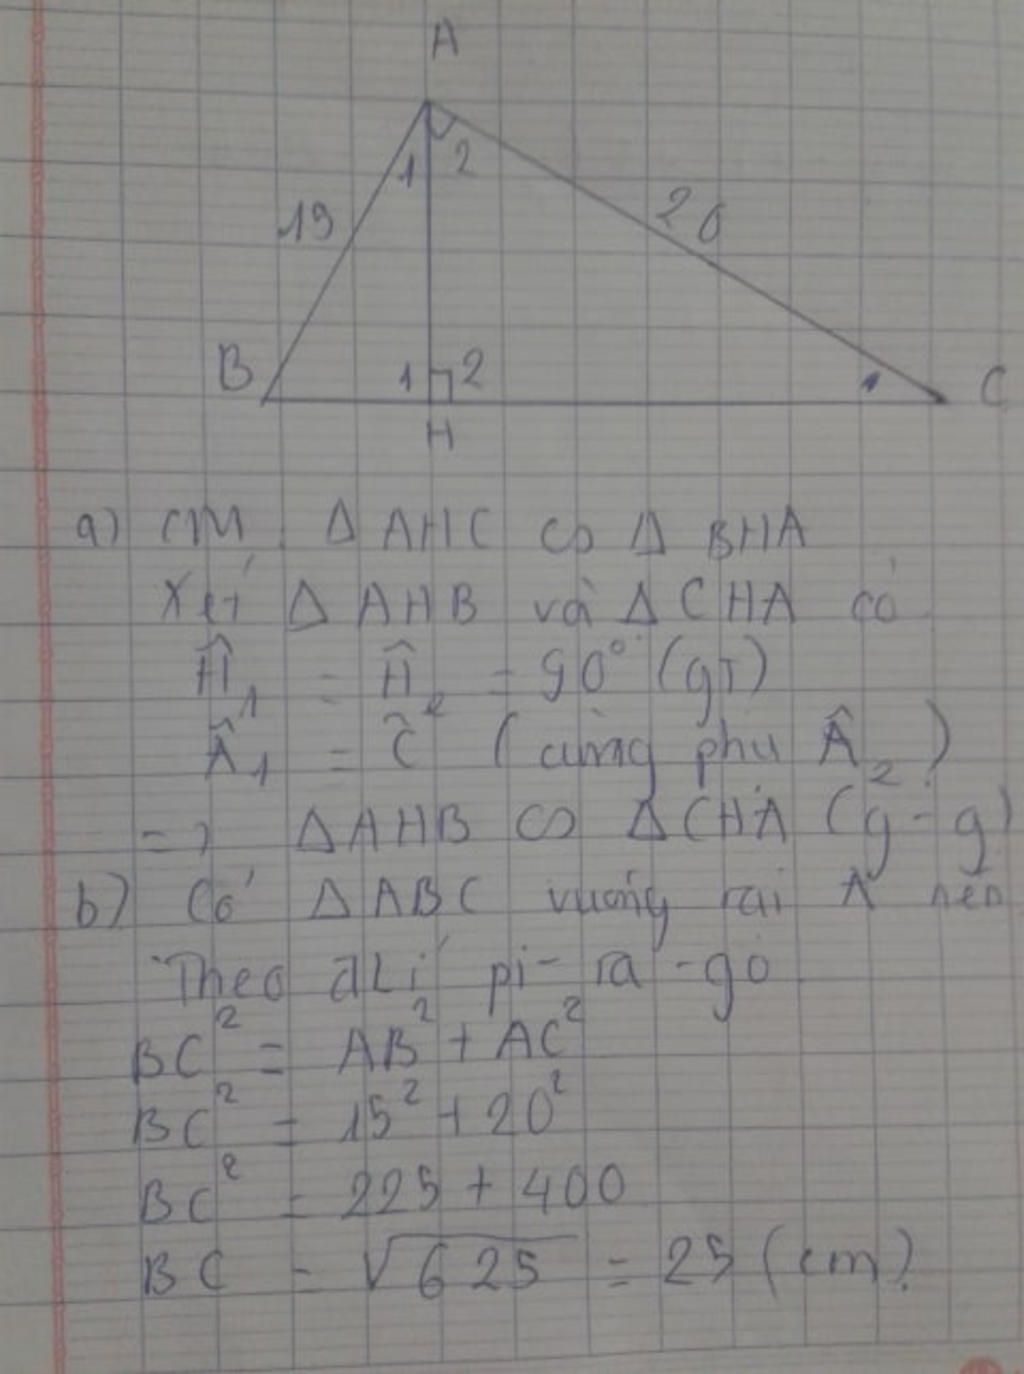 A
1 2
19
20
B
1 2
C
H
a) CM : Δ AHC ∽ Δ BHA
Xét Δ AHB và Δ CHA có
Ĥ₁ = Ĥ₂ = 90° (gT)
Â₁ = Ĉ (cùng phụ Â₂)
=> ΔAHB ∽ ΔCHA (g-g)
b) Có ΔABC vuông tại A nên
Theo đLí pi-ta-go
BC² = AB² + AC²
BC² = 15² + 20²
BC² = 225 + 400
BC = √625 = 25 (cm)